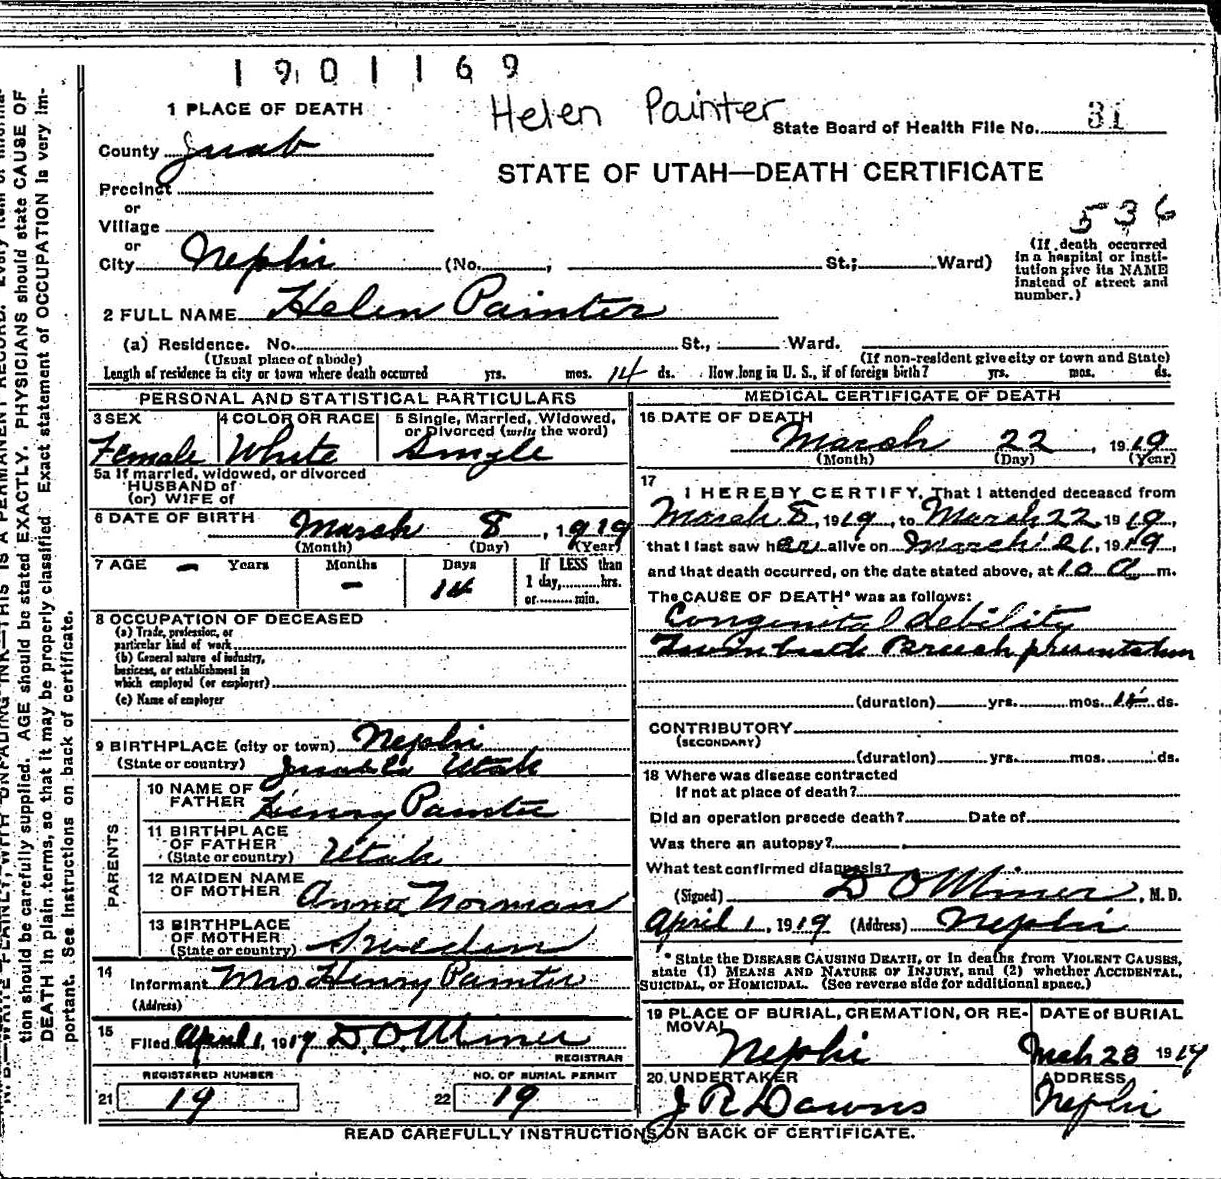 1901169
Helen Painter
1 PLACE OF DEATH
State Board of Health File No. 31
County Juab
STATE OF UTAH—DEATH CERTIFICATE
Precinct
or
Village
or
City Nephi (No. , St.; Ward)
536
(If death occurred
in a hospital or insti-
tution give its NAME
instead of street and
number.)
2 FULL NAME Helen Painter
(a) Residence. No. St., Ward.
(Usual place of abode) (If non-resident give city or town and State)
Length of residence in city or town where death occurred yrs. mos. 14 ds. How long in U. S., if of foreign birth? yrs. mos. ds.
PERSONAL AND STATISTICAL PARTICULARS
3 SEX Female
4 COLOR OR RACE White
5 Single, Married, Widowed,
or Divorced (write the word)
Single
5a If married, widowed, or divorced
HUSBAND of
(or) WIFE of
6 DATE OF BIRTH March 8, 1919
(Month) (Day) (Year)
7 AGE Years Months Days If LESS than
- - 14 1 day, hrs.
or min.
8 OCCUPATION OF DECEASED
(a) Trade, profession, or
particular kind of work
(b) General nature of industry,
business, or establishment in
which employed (or employer)
(c) Name of employer
9 BIRTHPLACE (city or town) Nephi
(State or country) Juab Co Utah
PARENTS
10 NAME OF
FATHER Henry Painter
11 BIRTHPLACE
OF FATHER
(State or country) Utah
12 MAIDEN NAME
OF MOTHER Anna Norman
13 BIRTHPLACE
OF MOTHER
(State or country) Sweden
14
Informant Mrs Henry Painter
(Address)
15
Filed April 1, 1919 D. O. Miner
REGISTRAR
REGISTERED NUMBER NO. OF BURIAL PERMIT
21 19 22 19
MEDICAL CERTIFICATE OF DEATH
16 DATE OF DEATH
March 22, 1919
(Month) (Day) (Year)
17
I HEREBY CERTIFY, That I attended deceased from
March 8, 1919, to March 22, 1919,
that I last saw her alive on March 21, 1919,
and that death occurred, on the date stated above, at 10 a m.
The CAUSE OF DEATH* was as follows:
Congenital debility
Twin birth Breech presentation
(duration) yrs. mos. 14 ds.
CONTRIBUTORY
(SECONDARY)
(duration) yrs. mos. ds.
18 Where was disease contracted
If not at place of death?
Did an operation precede death? Date of
Was there an autopsy?
What test confirmed diagnosis?
(Signed) D O Miner, M. D.
April 1, 1919 (Address) Nephi
* State the DISEASE CAUSING DEATH, or in deaths from VIOLENT CAUSES,
state (1) MEANS AND NATURE OF INJURY, and (2) whether ACCIDENTAL,
SUICIDAL, or HOMICIDAL. (See reverse side for additional space.)
19 PLACE OF BURIAL, CREMATION, OR RE-
MOVAL
Nephi
DATE of BURIAL
Mch 23 1919
20 UNDERTAKER
J R Downs
ADDRESS
Nephi
READ CAREFULLY INSTRUCTIONS ON BACK OF CERTIFICATE.
WRITE PLAINLY, WITH UNFADING INK—THIS IS A PERMANENT RECORD. Every item of informa-
tion should be carefully supplied. AGE should be stated EXACTLY. PHYSICIANS should state CAUSE OF
DEATH in plain terms, so that it may be properly classified. Exact statement of OCCUPATION is very im-
portant. See instructions on back of certificate.